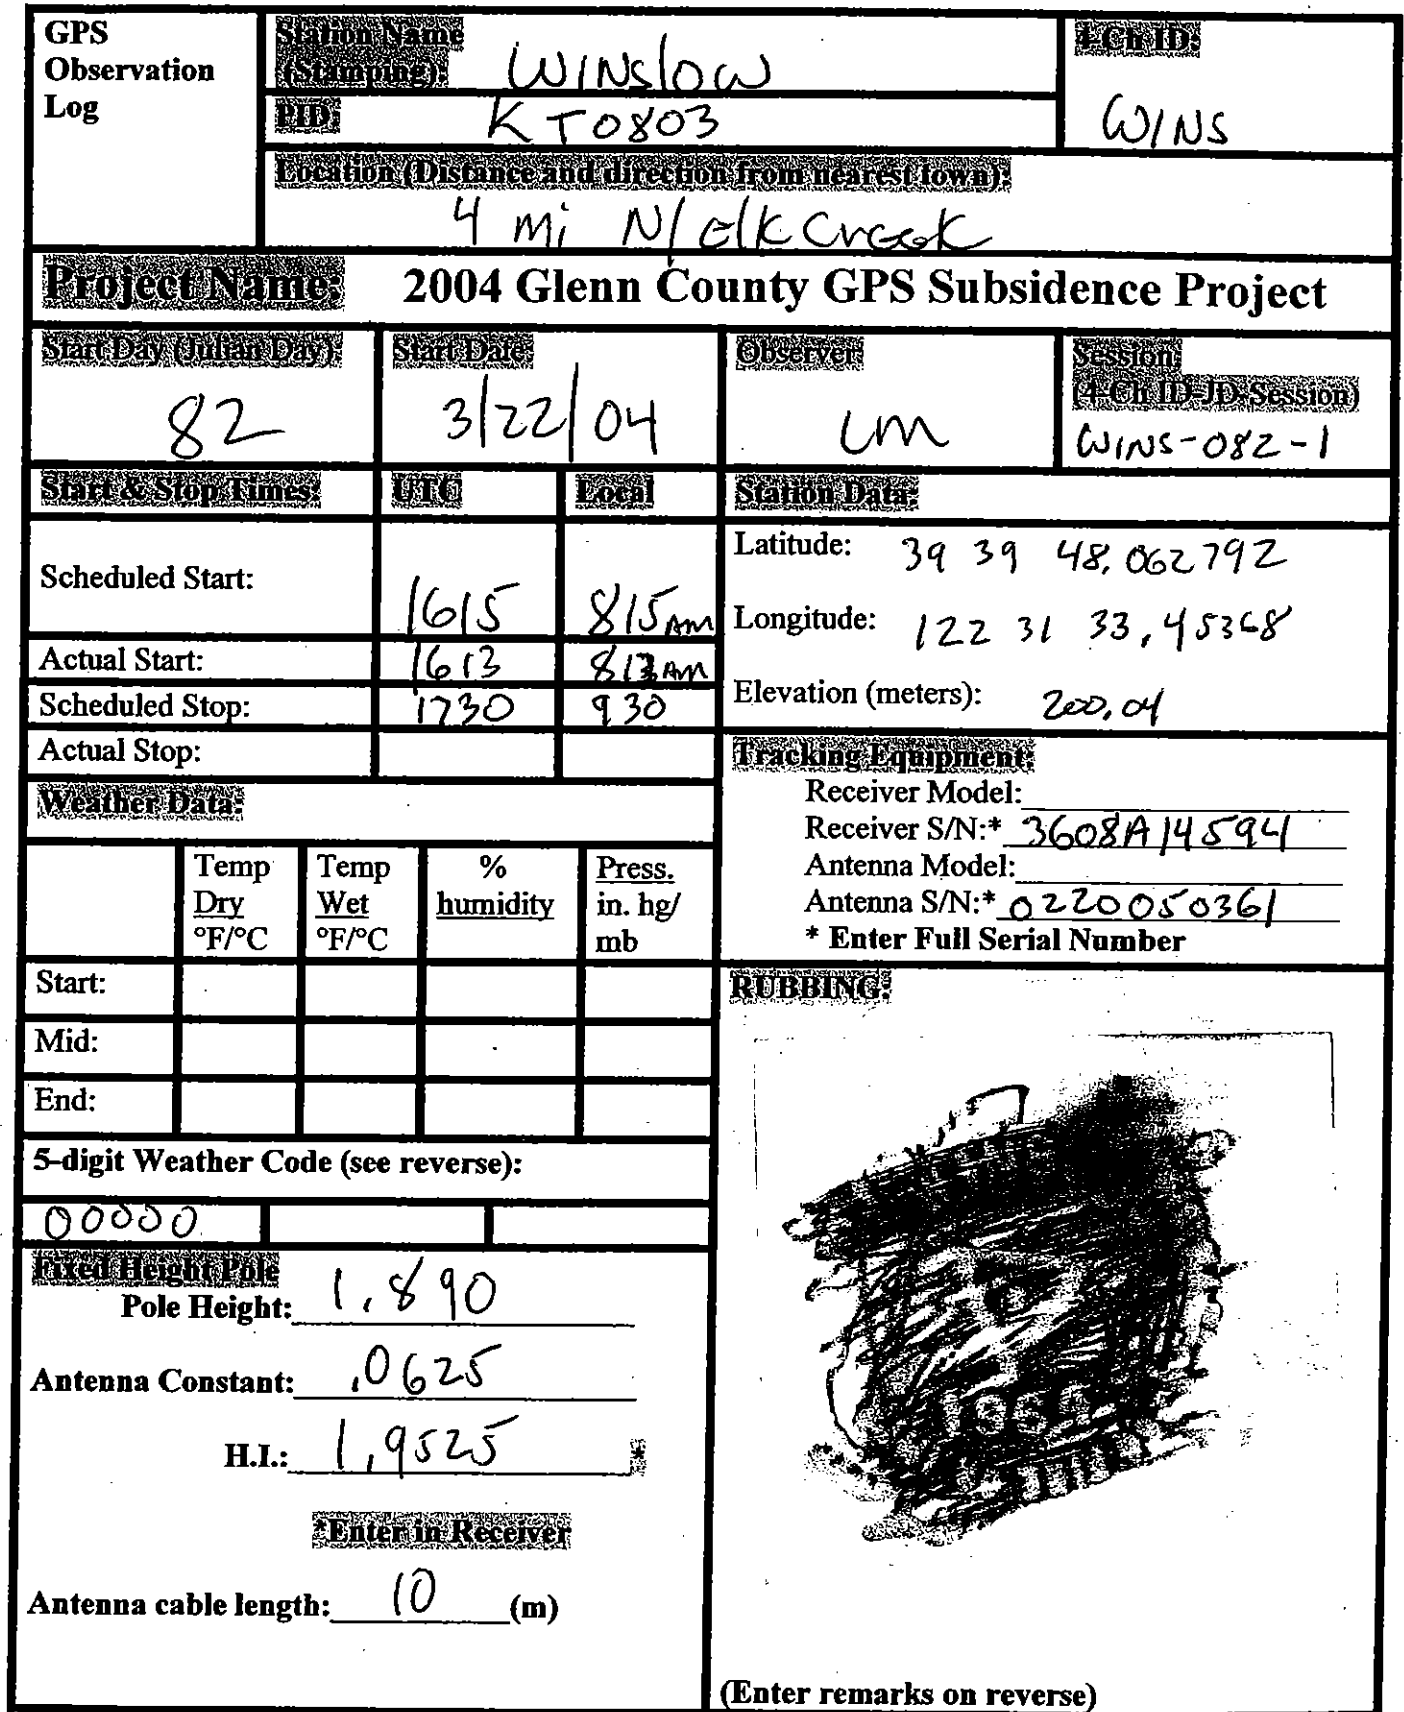 GPS
Observation
Log
Station Name
(Stamping): WINslow
4-Ch ID:
WINS
PID: KT0803
Location (Distance and direction from nearest town):
4 mi N/ElkCreek
Project Name: 2004 Glenn County GPS Subsidence Project
Start Day (Julian Day):
82
Start Date:
3/22/04
Observer:
LM
Session:
(4-Ch ID-JD-Session)
WINS-082-1
Start & Stop Times: UTC Local
Scheduled Start: 1615 815AM
Actual Start: 1613 813AM
Scheduled Stop: 1730 930
Actual Stop:
Station Data:
Latitude: 39 39 48.062792
Longitude: 122 31 33.45368
Elevation (meters): 200.04
Tracking Equipment:
Receiver Model:
Receiver S/N:* 3608A14594
Antenna Model:
Antenna S/N:* 0220050361
* Enter Full Serial Number
Weather Data:
Temp
Dry
°F/°C
Temp
Wet
°F/°C
%
humidity
Press.
in. hg/
mb
Start:
Mid:
End:
5-digit Weather Code (see reverse):
00000
Fixed Height Pole
Pole Height: 1.890
Antenna Constant: .0625
H.I.: 1.9525 *
*Enter in Receiver
Antenna cable length: 10 (m)
RUBBING:
(Enter remarks on reverse)